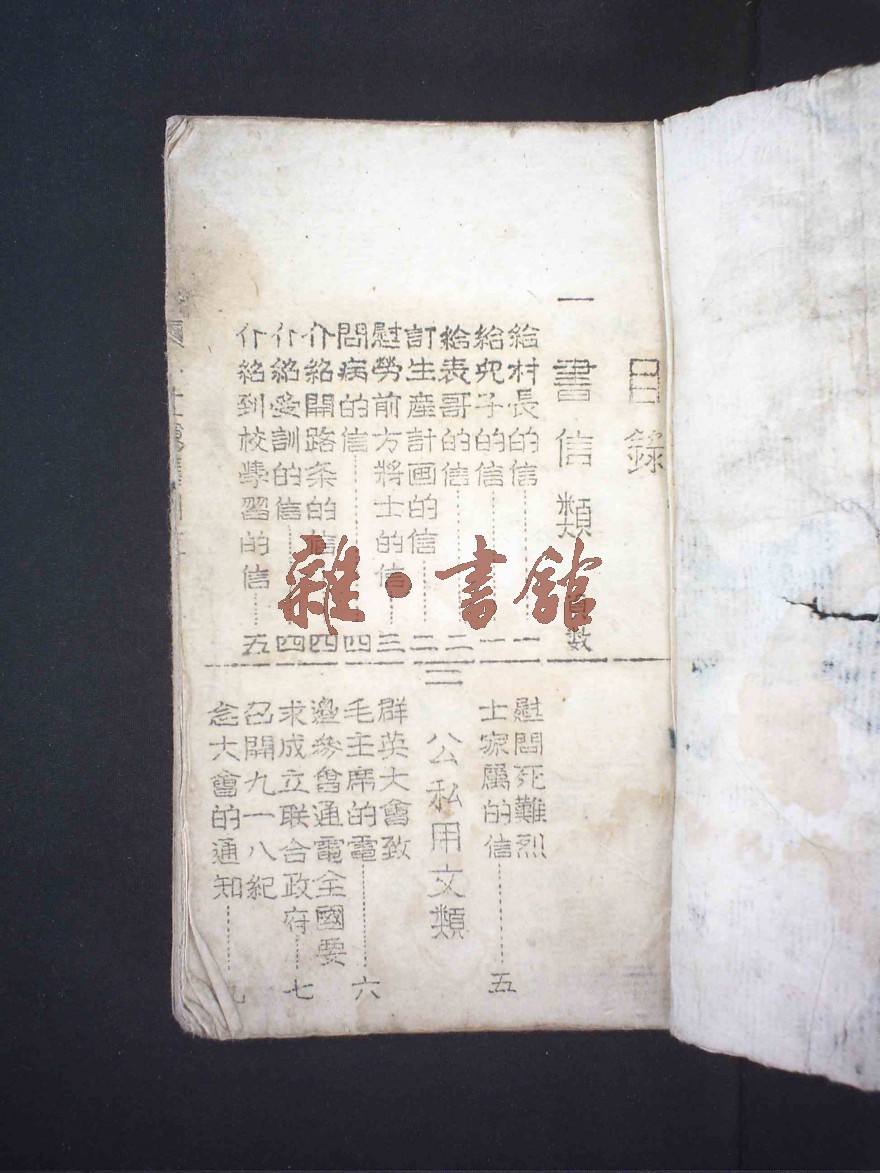 目錄
一 書信類 頁數
給村長的信 一
給兒子的信 一
給表哥的信 二
訂生産計画的信 二
慰勞前方將士的信 三
問病的信 四
介紹開路条的信 四
介紹受訓的信 四
介紹到校學習的信 五
慰問死難烈
士家屬的信 五
二 公私用文類
群英大會致
毛主席的電 六
邊參會通電全國要
求成立联合政府 七
召開九一八紀
念大會的通知 九
雜·書館